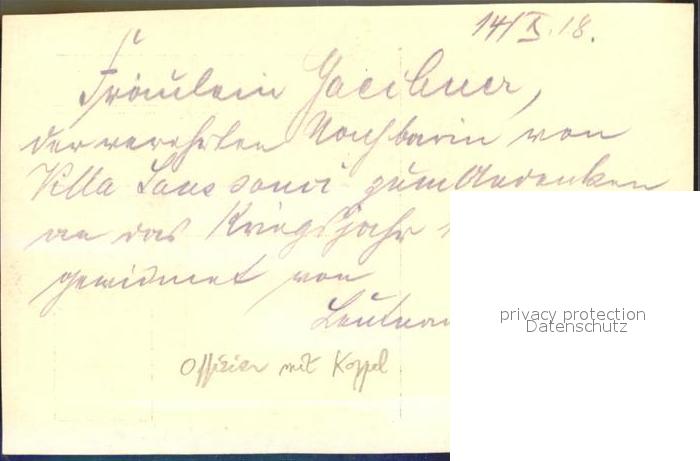 14/X.18.
Fräulein
der verehrten Nachbarin von
Villa Sanssouci zum Andenken
an das Kriegsjahr
gewidmet von
Offizier mit Koppel
privacy protection
Datenschutz